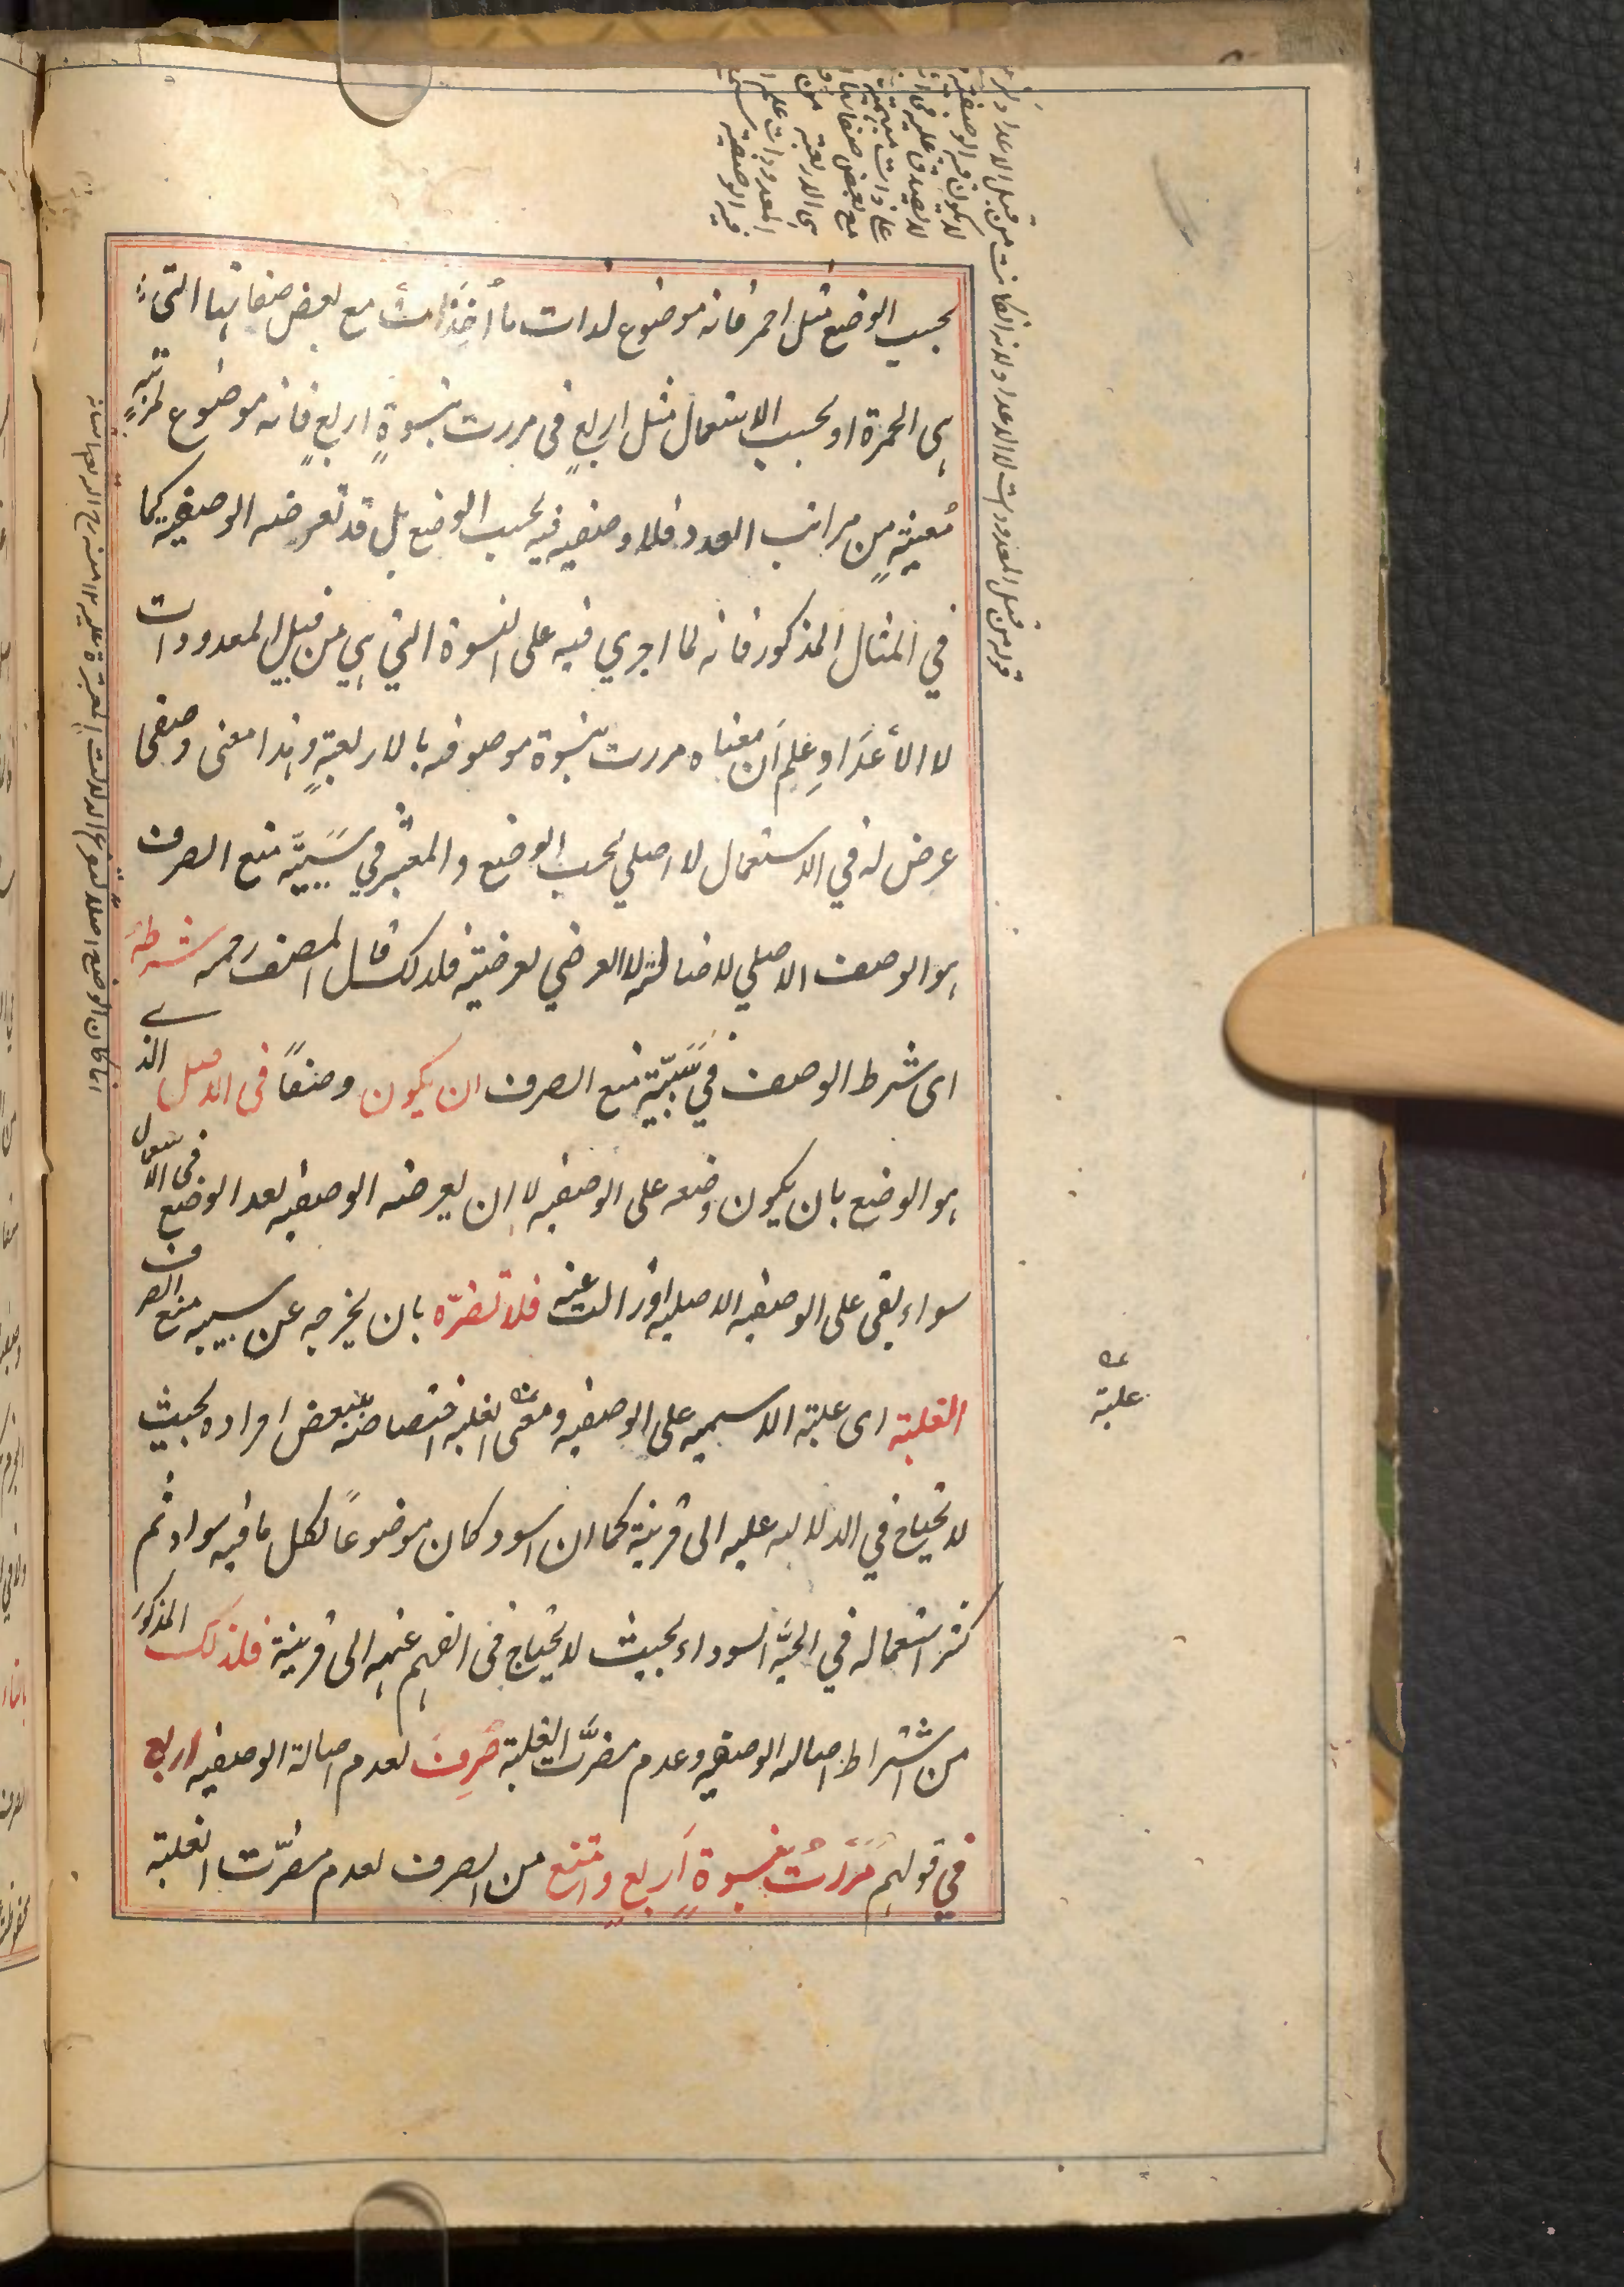 بحسب الوضع مثل احمر فانه موضوع لذات ما اُخِذَت مع بعض صفاتها التى
هى الحمرة او بحسب الاستعمال مثل اربعٍ فى مررت بنسوةٍ اربعٍ فانه موضوع لمرتبةٍ
مُعينةٍ من مراتب العدد فلا وصفيه فيه بحسب الوضع بل قد تعرضه الوصفيه كما
في المثال المذكور فانه لما اجري فيه على النسوة التي هي من قبيل المعدودات
لا الأعدَادِ عُلِمَ اَن معناه مررت بنسوة موصوفه بالاربعةٍ وهذا معنى وصفى
عرض له في الاستعمال لا اصلي بحسب الوضع والمعتبر في سَبَبِيَّه منع الصرف
هو الوصف الاصلي لاصالته لا العرضي لعرضيته فلذلك قال المصنف رحمه شرطهُ
اى شرط الوصف في سَبَبِيَّة منع الصرف ان يكون وصفاً فى الاصل الذى
هو الوضع بان يكون وضعه على الوصفيه لا ان يعرضه الوصفيه بعد الوضع فى الاستعمال
سواء بقى على الوصفيه الاصليه او زالت عنه فلا تضرّه بان يخرجه عن سببيه منع الصرف
الغلبة اى غلبة الاسميه على الوصفيه ومعنى الغلبه اختصاصه ببعض افراده بحيث
لا يحتاج في الدلاله عليه الى قرينة كما ان اسود كان موضوعاً لكل ما فيه سواد ثم
كثر استعماله في الحيَّه السوداء بحيث لا يحتاج فى الفهم عنه الى قرينة فلذلك المذكور
من اشتراط اصاله الوصفيه وعدم مضرَّت الغلبة صُرِفَ لعدم اصالة الوصفيه اربع
في قولهم مَرَرتُ بنسوةٍ اَربعٍ وامتنع من الصرف لعدم مضرّت الغلبة
غلبة
قوله من قبيل المعدودات لا الاعداد
لا يكون فيه الوصفية
على ذات مبهمة
مع بعض صفاتها
هى الاربعة
المعدودات
فيه الوصفية